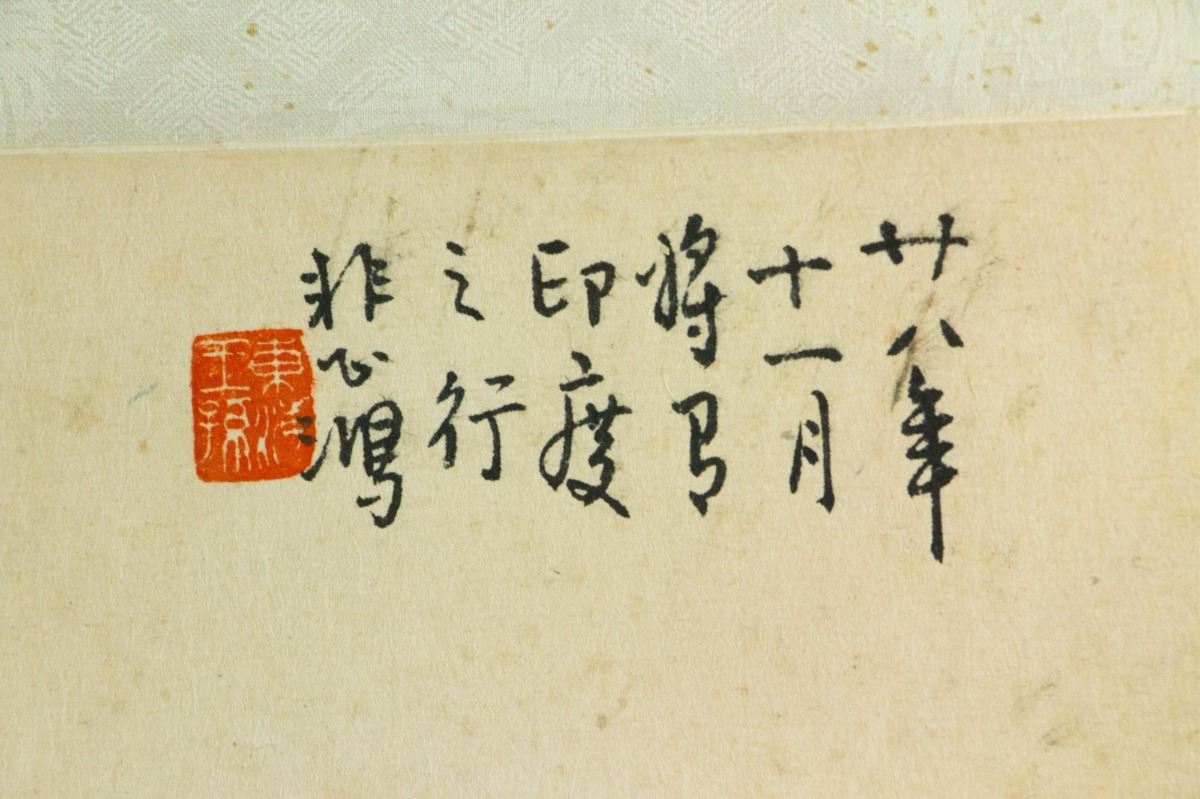 廿八年
十一月
將有
印度
之行
悲鴻
東海王孫